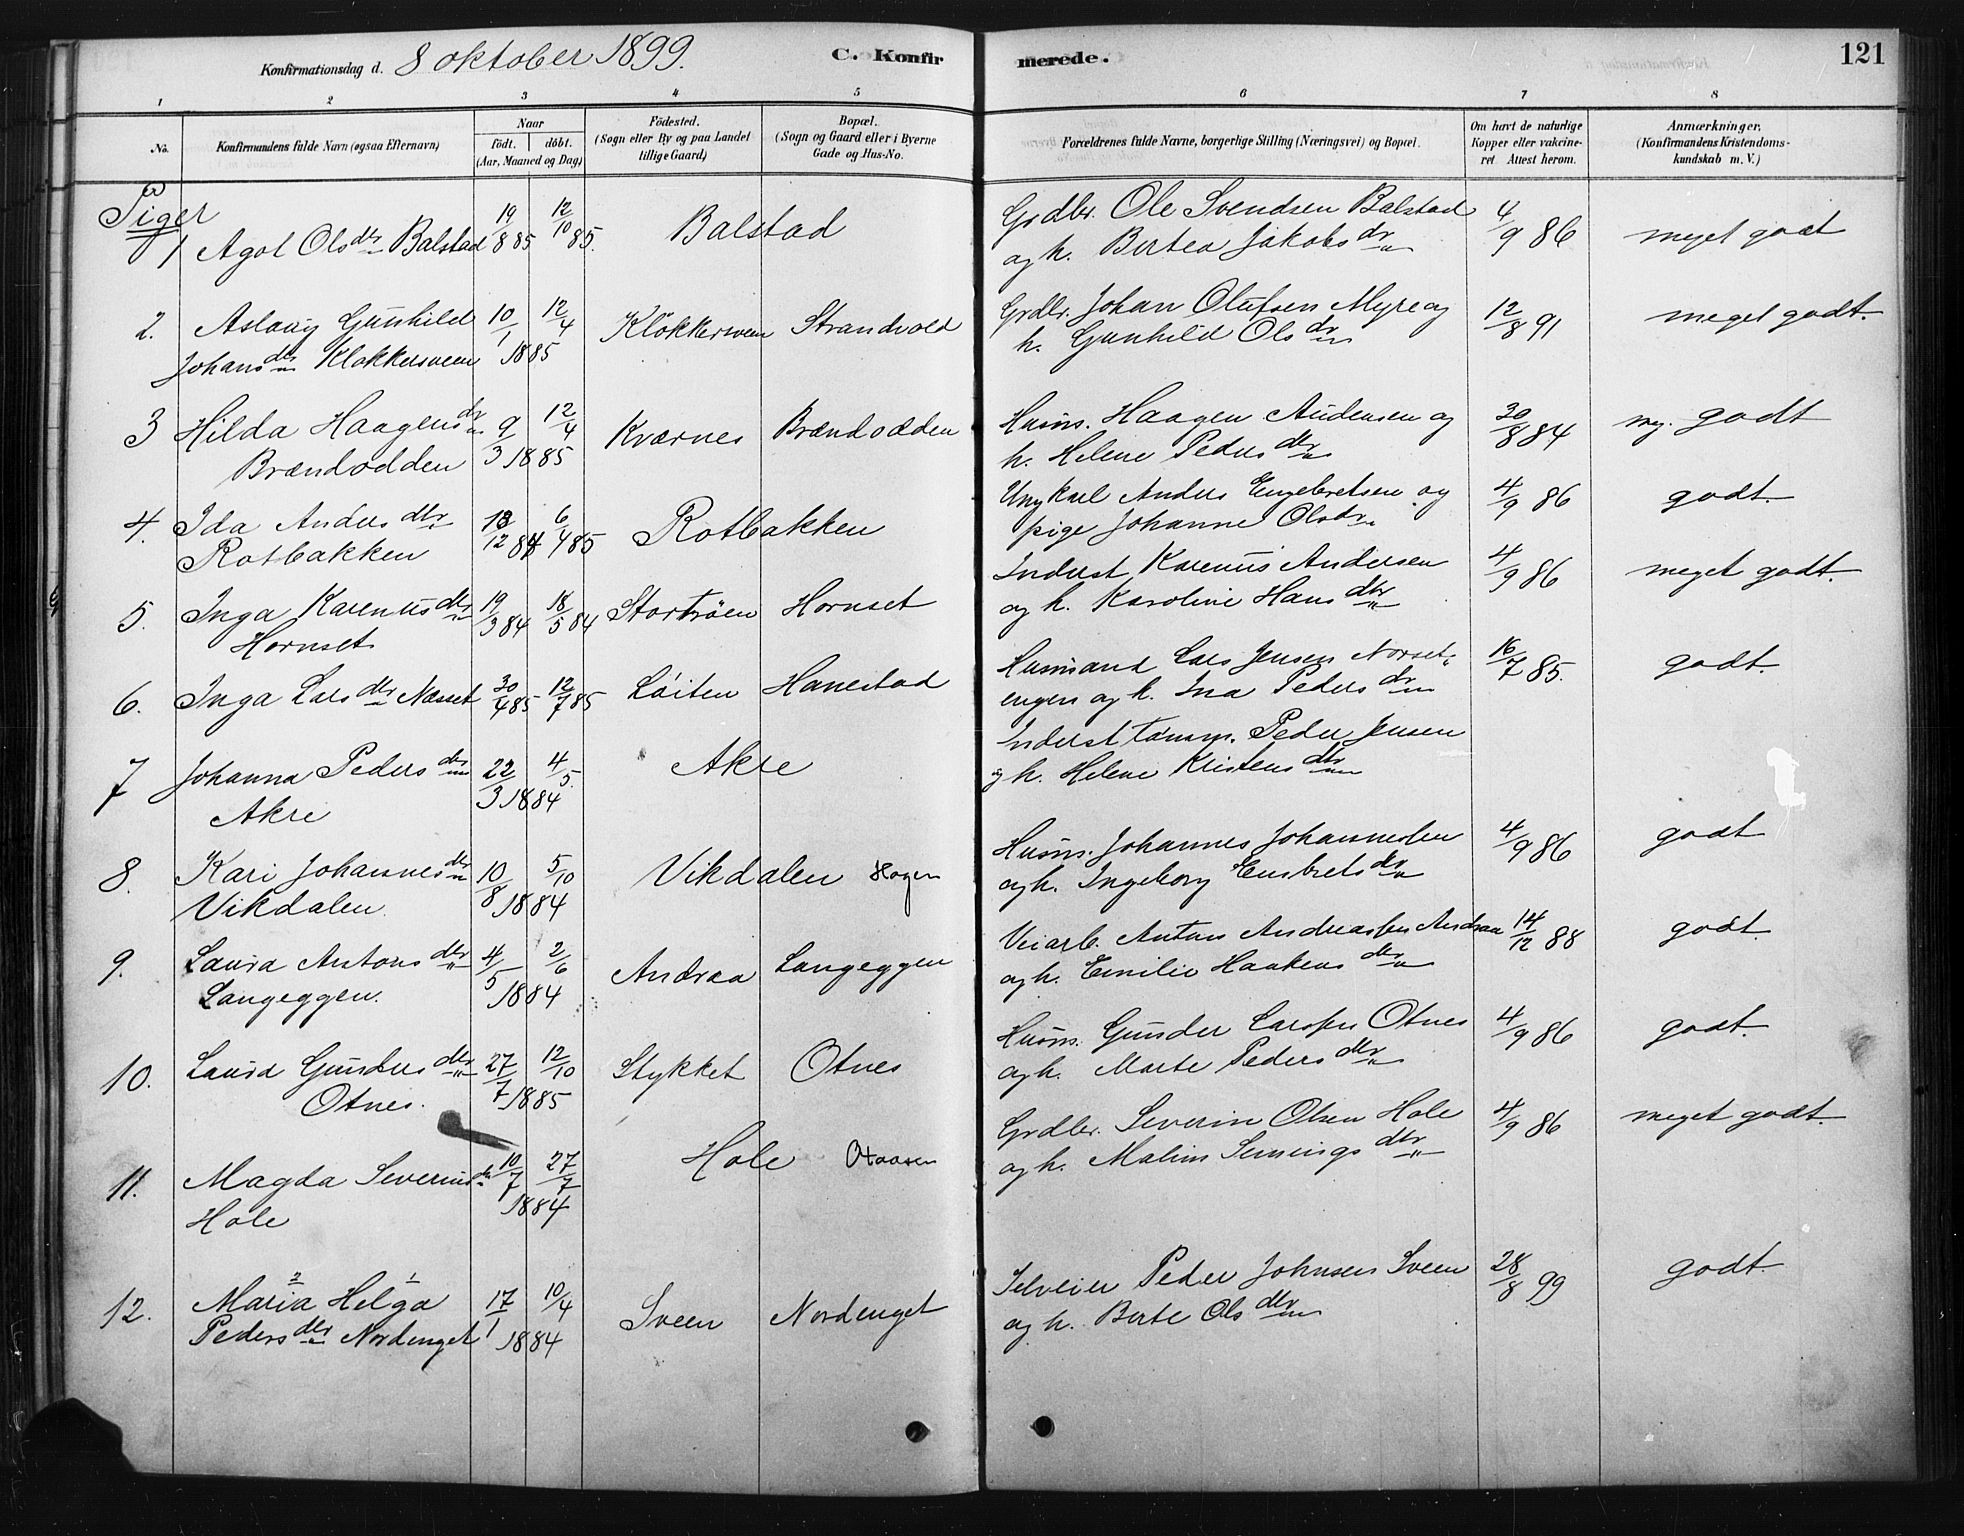 Konfirmationsdag d. 8 oktober 1899.
C. Konfirmerede.
121
1 2 3 4 5 6 7 8
No.
Konfirmandens fulde Navn (ogsaa Efternavn)
Naar
födt. döbt.
(Aar, Maaned og Dag)
Födested.
(Sogn eller By og paa Landet
tillige Gaard)
Bopæl.
(Sogn og Gaard eller i Byerne
Gade og Hus-No.
Forældrenes fulde Navne, borgerlige Stilling (Næringsvei) og Bopæl.
Om havt de naturlige
Kopper eller vakcine-
ret. Attest herom.
Anmærkninger.
(Konfirmandens Kristendoms-
kundskab m. V.)
Piger
1 Agot Olsdtr Balstad 19/8 85 12/10 85. Balstad Grdbr. Ole Svendsen Balstad 4/9 86 meget godt
og h. Bertea Jakobsdr
2. Aslaug Gunhild 10/1 12/4 Klökkersveen Strandvold Grdbr. Johan Olufsen Myre og 12/8 91 meget godt.
Johansdtr Klokkersveen 1885 h. Gunhild Olsdr
3 Hilda Haagensdr 9/3 12/4 Kværnes Brændodden Husm. Haagen Audensen og 30/8 84 mg. godt
Brændodden 1885 h. Helene Pedersdtr
4. Ida Andersdtr 13/12 84 6/4 85 Rotbakken Ungkarl Anders Engebretsen og 4/9 86 godt.
Rotbakken pige Johanne Olsdr
5. Inga Karenusdtr 19/3 84 18/5 84 Stortröen Hornset Inderst Karenus Andersen 4/9 86 meget godt.
Hornset og h. Karoline Hansdtr
6. Inga Larsdtr Næsset 30/4 85 12/7 85 Löiten Hanestad Husmand Lars Jensen Norset- 16/7 85. godt.
engen og h. Ina Pedersdr
7 Johanna Pedersdtr 22/3 4/5. Akre Inderst Tömm. Peder Jensen
Akre 1884 og h. Helene Kristensdtr
8. Kari Johannesdtr 10/8 5/10 Vikdalen Hagen Husm. Johannes Johannessen 4/9 86 godt
Vikdalen. 1884 og h. Ingeborg Embretsdtr
9. Laura Antonsdtr 4/5 2/6 Andraa Langeggen Veiarb. Anton Andreassen Andraa 14/12 88 godt.
Langeggen. 1884 og h. Emilie Haakensdtr
10. Laura Gundersdtr 27/7 12/10 Stykket Otnes Husm. Gunder Larssen Otnes 4/9 86 godt.
Otnes. 1885 og h. Marte Pedersdtr
11. Magda Severinsdtr 10/7 27/7 Hole Otaasen Grdbr. Severin Olsen Hole 4/9 86 meget godt.
Hole 1884 og h. Malin Semingsdtr
12. Maria Helga 17/1 10/4 Sveen Nordenget Selveier Peder Johnsen Sveen 28/8 99 godt.
Pedersdtr Nordenget 1884 og h. Berte Olsdtr